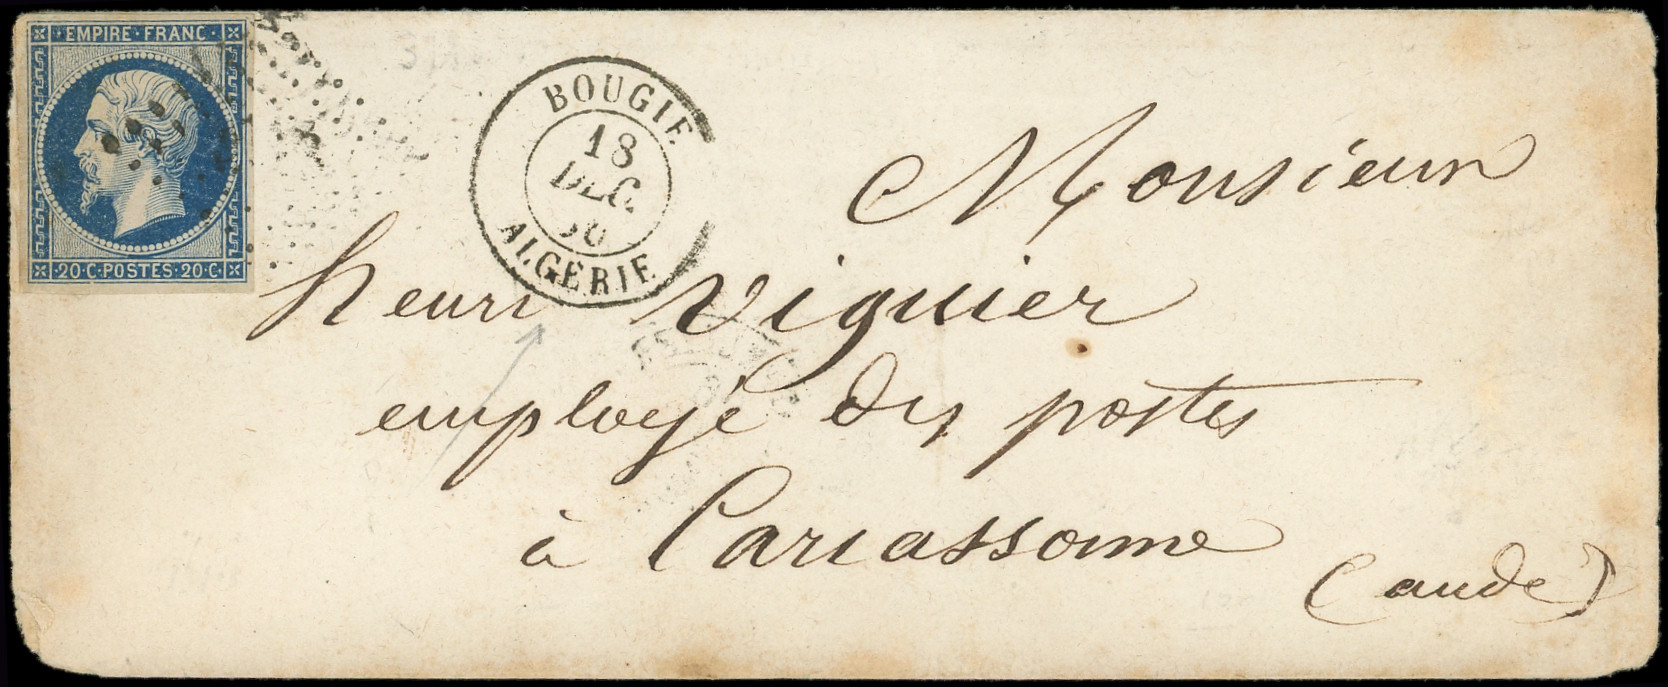 EMPIRE · FRANC ·
20 · C · POSTES · 20 · C ·
BOUGIE
18
DEC.
ALGERIE
Monsieur
henri Viguier
employé des postes
à Carcassonne
(aude)